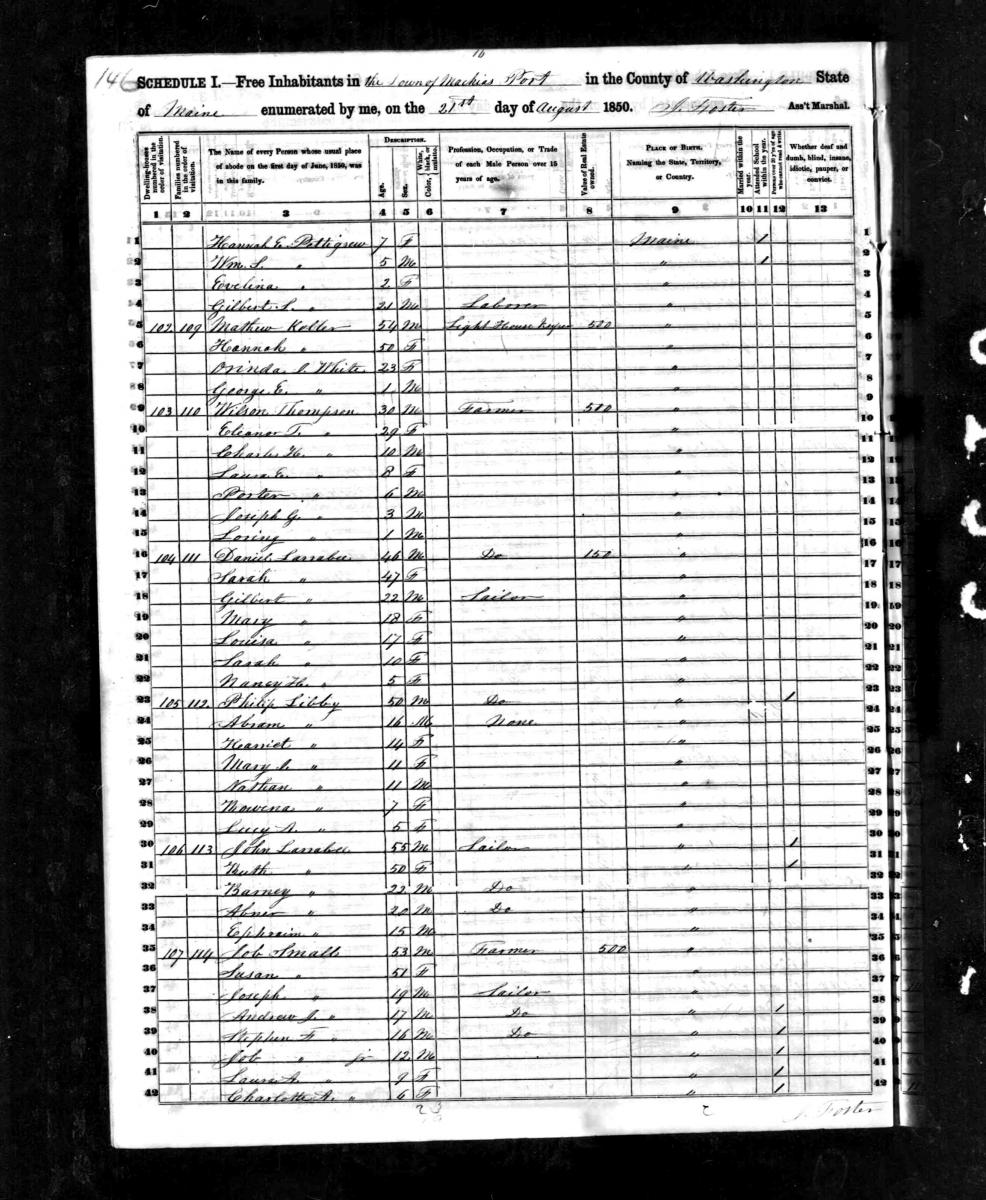 16
146 SCHEDULE I.—Free Inhabitants in the Town of Machias Port in the County of Washington State
of Maine enumerated by me, on the 21st day of August 1850. J. Foster Ass't Marshal.
Dwelling-houses numbered in the order of visitation.
Families numbered in the order of visitation.
The Name of every Person whose usual place of abode on the first day of June, 1850, was in this family.
DESCRIPTION.
Age.
Sex.
Color, White, black, or mulatto.
Profession, Occupation, or Trade of each Male Person over 15 years of age.
Value of Real Estate owned.
PLACE OF BIRTH. Naming the State, Territory, or Country.
Married within the year.
Attended School within the year.
Persons over 20 y'rs of age who cannot read & write.
Whether deaf and dumb, blind, insane, idiotic, pauper, or convict.
1 2 3 4 5 6 7 8 9 10 11 12 13
1 Hannah E. Pettigrew 7 F Maine 1 1
2 Wm. S. " 5 M " 1 2
3 Evelina " 2 F " 3
4 Gilbert L. " 21 M Laborer " 4
5 102 109 Mathew Keller 54 M Light House Keeper 500 " 5
6 Hannah " 50 F " 6
7 Orinda C. White 23 F " 7
8 George E. " 1 M " 8
9 103 110 Wilson Thompson 30 M Farmer 500 " 9
10 Eleanor T. " 29 F " 10
11 Charles H. " 10 M " 11
12 Laura E. " 8 F " 12
13 Porter " 6 M " 13
14 Joseph G. " 3 M " 14
15 Loring " 1 M " 15
16 104 111 Daniel Larrabee 46 M Do 150 " 16
17 Sarah " 47 F " 17
18 Gilbert " 22 M Sailor " 18
19 Mary " 18 F " 19
20 Louisa " 17 F " 20
21 Sarah " 10 F " 21
22 Nancy H. " 5 F " 22
23 105 112 Philip Libby 50 M Do " 1 23
24 Abram " 16 M None " 24
25 Harriet " 14 F " 25
26 Mary C. " 11 F " 26
27 Nathan " 11 M " 27
28 Rowena " 7 F " 28
29 Lucy A. " 5 F " 29
30 106 113 John Larrabee 55 M Sailor " 1 30
31 Ruth " 50 F " 1 31
32 Barney " 22 M Do " 32
33 Abner " 20 M Do " 33
34 Ephraim " 15 M " 34
35 107 114 Job Small 53 M Farmer 500 " 35
36 Susan " 51 F " 36
37 Joseph " 19 M Sailor " 37
38 Andrew J. " 17 M Do " 1 38
39 Stephen F. " 16 M Do " 1 39
40 Job " jr 12 M " 1 40
41 Laura A. " 9 F " 1 41
42 Charlotte A. " 6 F " 1 42
J. Foster